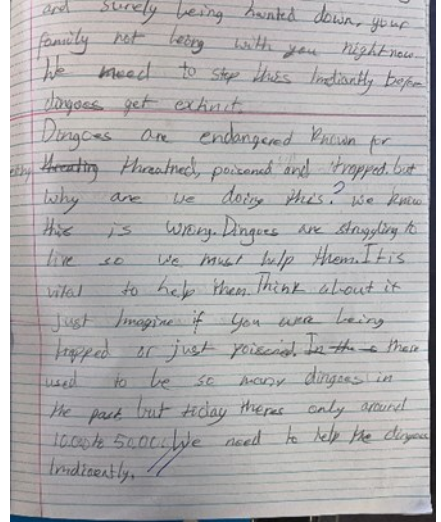 and surely being hunted down, your
family not being with you rightnow.
We need to step this Imdiantly before
dingoes get extinct.
Dingoes are endangered known for
threating threatned, poisoned and trapped, but
why are we doing this? we know
this is wrong. Dingoes are struggling to
live so we must help them. It is
vital to help them. Think about it
just Imagine if you were being
trapped or just poisined. In the there
used to be so many dingoes in
the past but today theres only around
to 50,000. We need to help the dingoes
Imdicently.